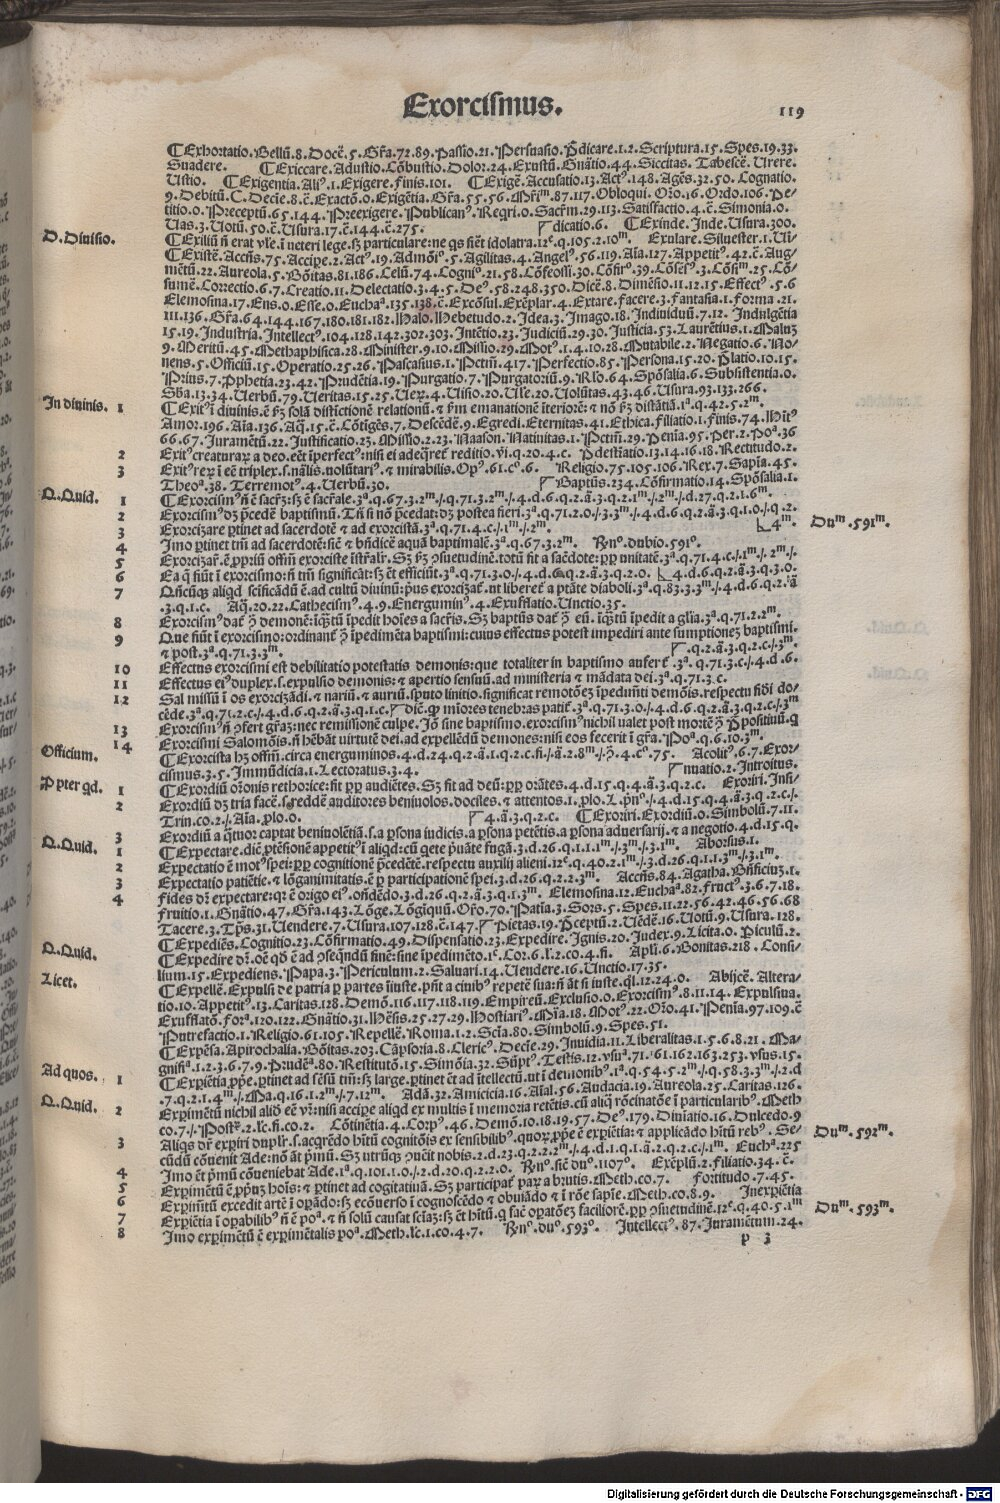 Exorcismus.
119
¶Exhortatio. Bellū.8. Docē.5. Gr̄a.72.89. Passio.21. Persuasio. P̄dicare.1.2. Scriptura.15. Spes.19.33.
Suadere. ¶Exiccare. Adustio. Cōbustio. Dolor.24. Exustū. Gn̄atio.44. Siccitas. Tabescē. Urere.
Ustio. ¶Exigentia. Aliꝰ.1. Exigere. finis.101. ¶Exigē. Accusatio.13. Actꝰ.148. Agēs.32.50. Cognatio.
9. Debitū. C. Decie.8.c̄. Exactō.0. Exigētia. Gr̄a.55.56. Mr̄im.87.117. Obloqui. Or̄o.16. Ordo.106. Pe-
titio.0. Preceptū.65.144. Preexigere. Publicanꝰ. Reqri.0. Sacr̄m.29.113. Satisfactio.4.c̄. Simonia.0.
Uas.3. Uotū.50.c̄. Usura.17.c̄.144.c̄.275. dicatio.6. ¶Exinde. Inde. Usura.300.
D. Diuisio.
¶Exiliū n̄ erat vl'e.i veteri lege.sꝫ particulare: ne qs fiēt idolatra.12e.q.105.2.10m. Exulare. Siluester.1. Ui-
¶Existē. Accn̄s.75. Accipe.2. Actꝰ.19. Admōiꝰ.5. Agilitas.4. Angelꝰ.56.119. Aīa.127. Appetitꝰ.42.c̄. Aug-
mētū.22. Aureola.5. Bōitas.81.186. Celū.74. Cogniꝰ.21.58. Cōfessiī.30. Cōfir̄.39. Cōsēsꝰ.3. Cōsim̄.25. Cō-
sumē. Correctio.6.7. Creatio.11. Delectatio.3.4.5. Deꝰ.58.248.350. Dicē.8. Dimēsio.11.12.15. Effectꝰ.5.6
Elemosina.17. Ens.0. Esse.0. Euchaa.135.138.c̄. Excōsul. Exēplar.4. Extare. Facere.3. Fantasia.1. Forma.21.
111.136. Gr̄a.64.144.167.180.181.182. Halo. Hebetudo.2. Idea.3. Imago.18. Indiuiduū.7.12. Indulgētia
15.19. Industria. Intellectꝰ.104.128.142.302.303. Intētio.23. Judiciū.29.30. Justicia.53. Laurētius.1. Maluꝫ
9. Meritū.45. Methaphisica.28. Minister.9.10. Missio.29. Motꝰ.1.4.10.28. Mutabile.2. Negatio.6. No-
nens.5. Officiū.15. Operatio.25.26. Pascasius.1. Pctm̄.417. Perfectio.85. Persona.15.20. P̄latio.10.15.
Prius.7. Prphetia.23.42. Prudētia.19. Purgatio.7. Purgatoriū.9. Rl'o.64. Spōsalia.6. Subsistentia.0.
Sb̄a.13.34. Uerbū.79. Ueritas.15.25. Uer̄.4. Uisio.20. Ul'e.20. Uolūtas.43.46. Usura.93.133.266.
In diuinis. 1
¶Exitꝰ i diuinis.ē sꝫ solā distictionē relationū.⁊ p̄m emanationē iteriorē:⁊ nō sꝫ distātiā.1a.q.42.5.2m.
Amor.196. Aīa.136. Aq̄.15.c̄. Cōtigēs.7. Descēdē.9. Egredi. Eternitas.41. Ethica. Filiatio.1. Finis.74. Hitꝰ
66.67. Juramētū.22. Justificatio.23. Missio.2.23. Naason. Natiuitas.1. Pctm̄.29. Pen̄ia.95. Per.2. Poa.36
2 Exitꝰ creaturaꝝ a deo.eēt iperfectꝰ: nisi ei adeq̄ret reditio.vi.q.20.4.c. P̄destiatio.13.14.16.18. Rectitudo.2.
3 Exitꝰ reꝝ i eē triplex.s.nālis.volūtariꝰ.⁊ mirabilis. Opꝰ.61.co.6. Religio.75.105.106. Rex.7. Sapīa.45.
Theoa.38. Terremotꝰ.4. Uerbū.30. Baptūs.234. Cōfirmatio.14. Spōsalia.1.
Q. Quid. 1
¶Exorcismꝰ n̄ ē sacr̄ꝫ: sꝫ ē sacr̄ale.3a.q.67.3.2m./.q.71.3.2m./.4.d.6.q.2.ā.3.q.2.1m./.2m./.d.27.q.2.1.6m.
2 Exorcismꝰ dꝫ p̄cedē baptismū. Tn̄ si nō p̄cedat: dꝫ postea fieri.3a.q.71.2.0./.3.3m./.4.d.6.q.2.ā.3.q.1.0./.q.2.
3 Exorcizare ꝑtinet ad sacerdotē ⁊ ad exorcistā.3a.q.71.4.c./.1m./.2m. 4m. Dum.591m.
4 Imo ꝑtinet tm̄ ad sacerdotē: siē ⁊ bn̄dicē aquā baptimalē.3a.q.67.3.2m. Rn̄o.dubio.591o.
5 Exorcizar̄.ē ꝓpriū offm̄ exorciste istr̄alr̄. Sꝫ sꝫ ꝯsuetudinē.totū fit a sacēdote: ꝓpt vnitatē.3a.q.71.4.c./.1m./.2m./.
6 Ea q̄ fiūt i exorcismo: n̄ tm̄ significāt: sꝫ ēt efficiūt.3a.q.71.3.0./.4.d.6.q.2.ā.3.q.2.0. 4.d.6.q.2.ā.3.q.3.0.
7 Qn̄cūqꝫ aliqd̄ scīficādū ē.ad cultū diuinū: pus exorcizat̄.vt liberet̄ a ptāte diaboli.3a.q.83.3.3m./.4.d.6.q.2.ā
.3.q.1.c. Aq̄.20.22. Cathecismꝰ.4.9. Energuminꝰ.4. Exufflatio. Unctio.35.
8 Exorcismꝰ dat̄ ꝯ demonē: iqꝫtū ipedit hoies a sacr̄is. Sꝫ baptūs dat̄ ꝯ eū. iqꝫtū ipedit a gl'ia.3a.q.71.2.2m.
9 Que fiūt i exorcismo: ordinant̄ ꝯ ipedimēta baptismi: cuius effectus potest impediri ante sumptionez baptismi.
⁊ post.3a.q.71.3.3m. .q.2.ā.3.q.2.c./.3m.
10 Effectus exorcismi est debilitatio potestatis demonis: que totaliter in baptismo aufert̄.3a.q.71.3.c./.4.d.6.
11 Effectus eiꝰ duplex.s.expulsio demonis: ⁊ apertio sensuū.ad ministeria ⁊ mādata dei.3a.q.71.3.c.
12 Sal missū i os exorcizādi.⁊ nariū.⁊ auriū.sputo linitio.significat remotōeꝫ ipedimti demōis.respectu fidi do-
cēde.3a.q.71.2.c./.4.d.6.q.2.ā.3.q.1.c. dic̄.q mīores tenebras patit̄.3a.q.71.3.0./.4.d.6.q.2.ā.3.q.2.c./.3m
13 Exorcismꝰ n̄ ꝯfert gr̄aꝫ: nec remissionē culpe. Iō sine baptismo.exorcismꝰ nichil valet post mortē ꝯ P̄positiuū.q
14 Exorcismi Salomōis.n̄ hēbāt virtutē dei.ad expellēdū demones: nisi eos fecerit i gr̄a. Poa.q.6.10.3m.
Officium.
¶Exorcista hꝫ offm̄.circa energuminos.4.d.24.q.2.ā.1.q.2.c.fi./.ā.2.8m./.ꝯ.4.co.75. Acolitꝰ.6.7. Exor-
cismus.3.5. Immūdicia.1. Lectoratus.3.4. nuatio.2. Introitus.
Ppter qd. 1
¶Exordiū or̄onis rethorice: fit ꝓpt audiētes. Sꝫ fit ad deū: ꝓpt orātes.4.d.15.q.4.ā.3.q.2.c. Exoriri. Insi-
2 Exordiū dꝫ tria facē.s.reddē auditores beniuolos.dociles.⁊ attentos.1.plo.L.pn̄o./.4.d.15.q.4.ā.3.q.2.c./.
Trin.co.2./. Aīa.plo.0. 4.ā.3.q.2.c. ¶Exoriri. Exordiū.0. Simbolū.7.11.
3 Exordiū a q̄tuor captat beniuolētiā.s.a psona iudicis.a psona petētis.a psona aduersarij.⁊ a negotio.4.d.15.q.
Q. Quid. 1
¶Expectare.dic̄ ptēsionē appetitꝰ i aliqd: cū qete pūate fugā.3.d.26.q.1.1m./.3m./.3.1m. Aborsus.1.
2 Expectatio ē motꝰ spei: ꝓpt cognitionē p̄cedētē.respectu auxilij alieni.12e.q.40.2.1m./.3.d.26.q.1.1.3m./.3.1m.
3 Expectatio patiētie.⁊ lōganimitatis.ē ꝑ participationē spei.3.d.26.q.2.2.3m. Accn̄s.84. Agatha. Bn̄ficiuꝫ.1.
4 Fides dr̄ expectare: qr ē origo eiꝰ.on̄dēdo.3.d.26.q.2.ā.3.q.1.3m. Elemosina.12. Euchaa.82. Fructꝰ.3.6.7.18.
Fruitio.1. Gn̄atio.47. Gr̄a.143. Lōge. Lōgiquū. Or̄o.70. Patīa.3. Sors.5. Spes.11.22.56.42.46.56.68
Tacere.3. Tp̄s.31. Uendere.7. Usura.107.128.c̄.147. Pietas.19. P̄ceptū.2. Uēdē.16. Uotū.9. Usura.128.
¶Expediēs. Cognitio.23. Cōfirmatio.49. Dispensatio.23. Expedire. Ignis.20. Judex.9. Licita.0. Piculū.2.
Q. Quid.
¶Expedire dr̄.oē qd̄ ē ad ꝯseqndū finē: sine ipedimēto.1c.Cor.6.l.2.co.4.fi. Apl'i.6. Bonitas.218. Consi-
lium.15. Expediens. Papa.3. Periculum.2. Saluari.14. Uendere.16. Unctio.17.35.
Licet.
¶Expellē. Expulsi de patria ꝑ partes iiuste.pn̄t a ciuibꝰ repetē sua: n̄ āt si iuste.ql'.12.24.0. Abijcē. Altera-
tio.10. Appetitꝰ.13. Caritas.128. Demō.116.117.118.119. Empireū. Exclusio.0. Exorcismꝰ.8.11.14. Expulsiua.
Exufflatō. Fora.120.122. Gn̄atio.31. Hēsis.25.27.29. Hostiariꝰ. Mīa.18. Motꝰ.22. Or̄o.41. Pen̄ia.97.109.c̄
Putrefactio.1. Religio.61.105. Repellē. Roma.1.2. Scīa.80. Simbolū.9. Spes.51.
¶Expēsa. Apirochalia. Bōitas.203. Cāpsoria.8. Clericꝰ. Decīe.29. Inuidia.11. Liberalitas.1.5.6.8.21. Ma-
gnifia.1.2.3.6.7.9. Prudēa.80. Restitutō.15. Simōia.32. Sūptꝰ. Testis.12. Usua.71.61.162.163.253. Usus.15.
Ad quos. 1
¶Expiētia pp̄e.ptinet ad sēsū tm̄: sꝫ large.ptinet ēt ad itellectū.vt i demonibꝰ.1a.q.54.5.2m./.q.58.3.3m./.2.d
.7.q.2.1.4m./. Ma.q.16.1.2m./.7.12m. Adā.32. Amicicia.16. Aīal.56. Audacia.19. Aureola.25. Caritas.126.
Q. Quid. 2
Expimētū nichil aliō eē vr̄: nisi accipe aliqd ex multis i memoria retētis.cū aliq rōcinatōe i particularibꝰ. Meth
co.7./. Postr̄.2.l'c.fi.co.2. Cōtinētia.4. Corpꝰ.46. Demō.10.18.19.57. Deꝰ.179. Diuiatio.16. Dulcedo.9
3 Aliqs dr̄ expiri duplr̄.s.acqrēdo hitū cognitōis ex sensibilibꝰ.quoꝝ pp̄e ē expiētia: ⁊ applicādo hitū rebꝰ. Se-
Dum.592m.
cūdū cōuenit Ade: nō āt p̄mū. Sꝫ vtrūqꝫ ꝯuēit nobis.2.d.23.q.2.2.2m./.4.d.1.q.1.ā.2.q.2.c./.1m. Eucha.225
4 Imo ēt p̄mū cōueniebat Ade.1a.q.101.1.0./.2.d.20.q.2.2.0. Rn̄o.siē duo.1107o. Exēplū.2. Filiatio.34.c̄.
5 Expimētū ē.pp̄iuꝫ hoīs: ⁊ ptinet ad cogitatiuā. Sꝫ participat̄ paꝝ a brutis. Meth.co.7. Fortitudo.7.45.
6 Expim̄tū excedit artē i opādo: sꝫ ecōuerso i cognoscēdo ⁊ obuiādo ⁊ i rōe sapīe. Meth.co.8.9. Inexpiētia
7 Expiētia i opabilibꝰ n̄ ē poa.⁊ n̄ solū causat sciāꝫ: sꝫ ēt hitū.q faē opatōeꝫ faciliorē.ꝓpt ꝯsuetudinē.12e.q.40.5.1m
Dum.593m.
8 Imo expimētū ē expimētalis poa. Meth.l'c.1.co.4.7. Rn̄o.duo.593o. Intellectꝰ.87. Juramētum.24.
p 3
Digitalisierung gefördert durch die Deutsche Forschungsgemeinschaft - DFG